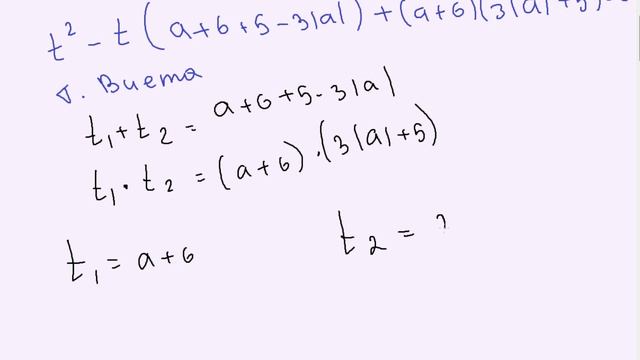 t² - t(a+6+5-3|a|)+(a+6)(3|a|+5)
т. Виета
t₁+t₂ = a+6+5-3|a|
t₁·t₂ = (a+6)·(3|a|+5)
t₁ = a+6 t₂ =